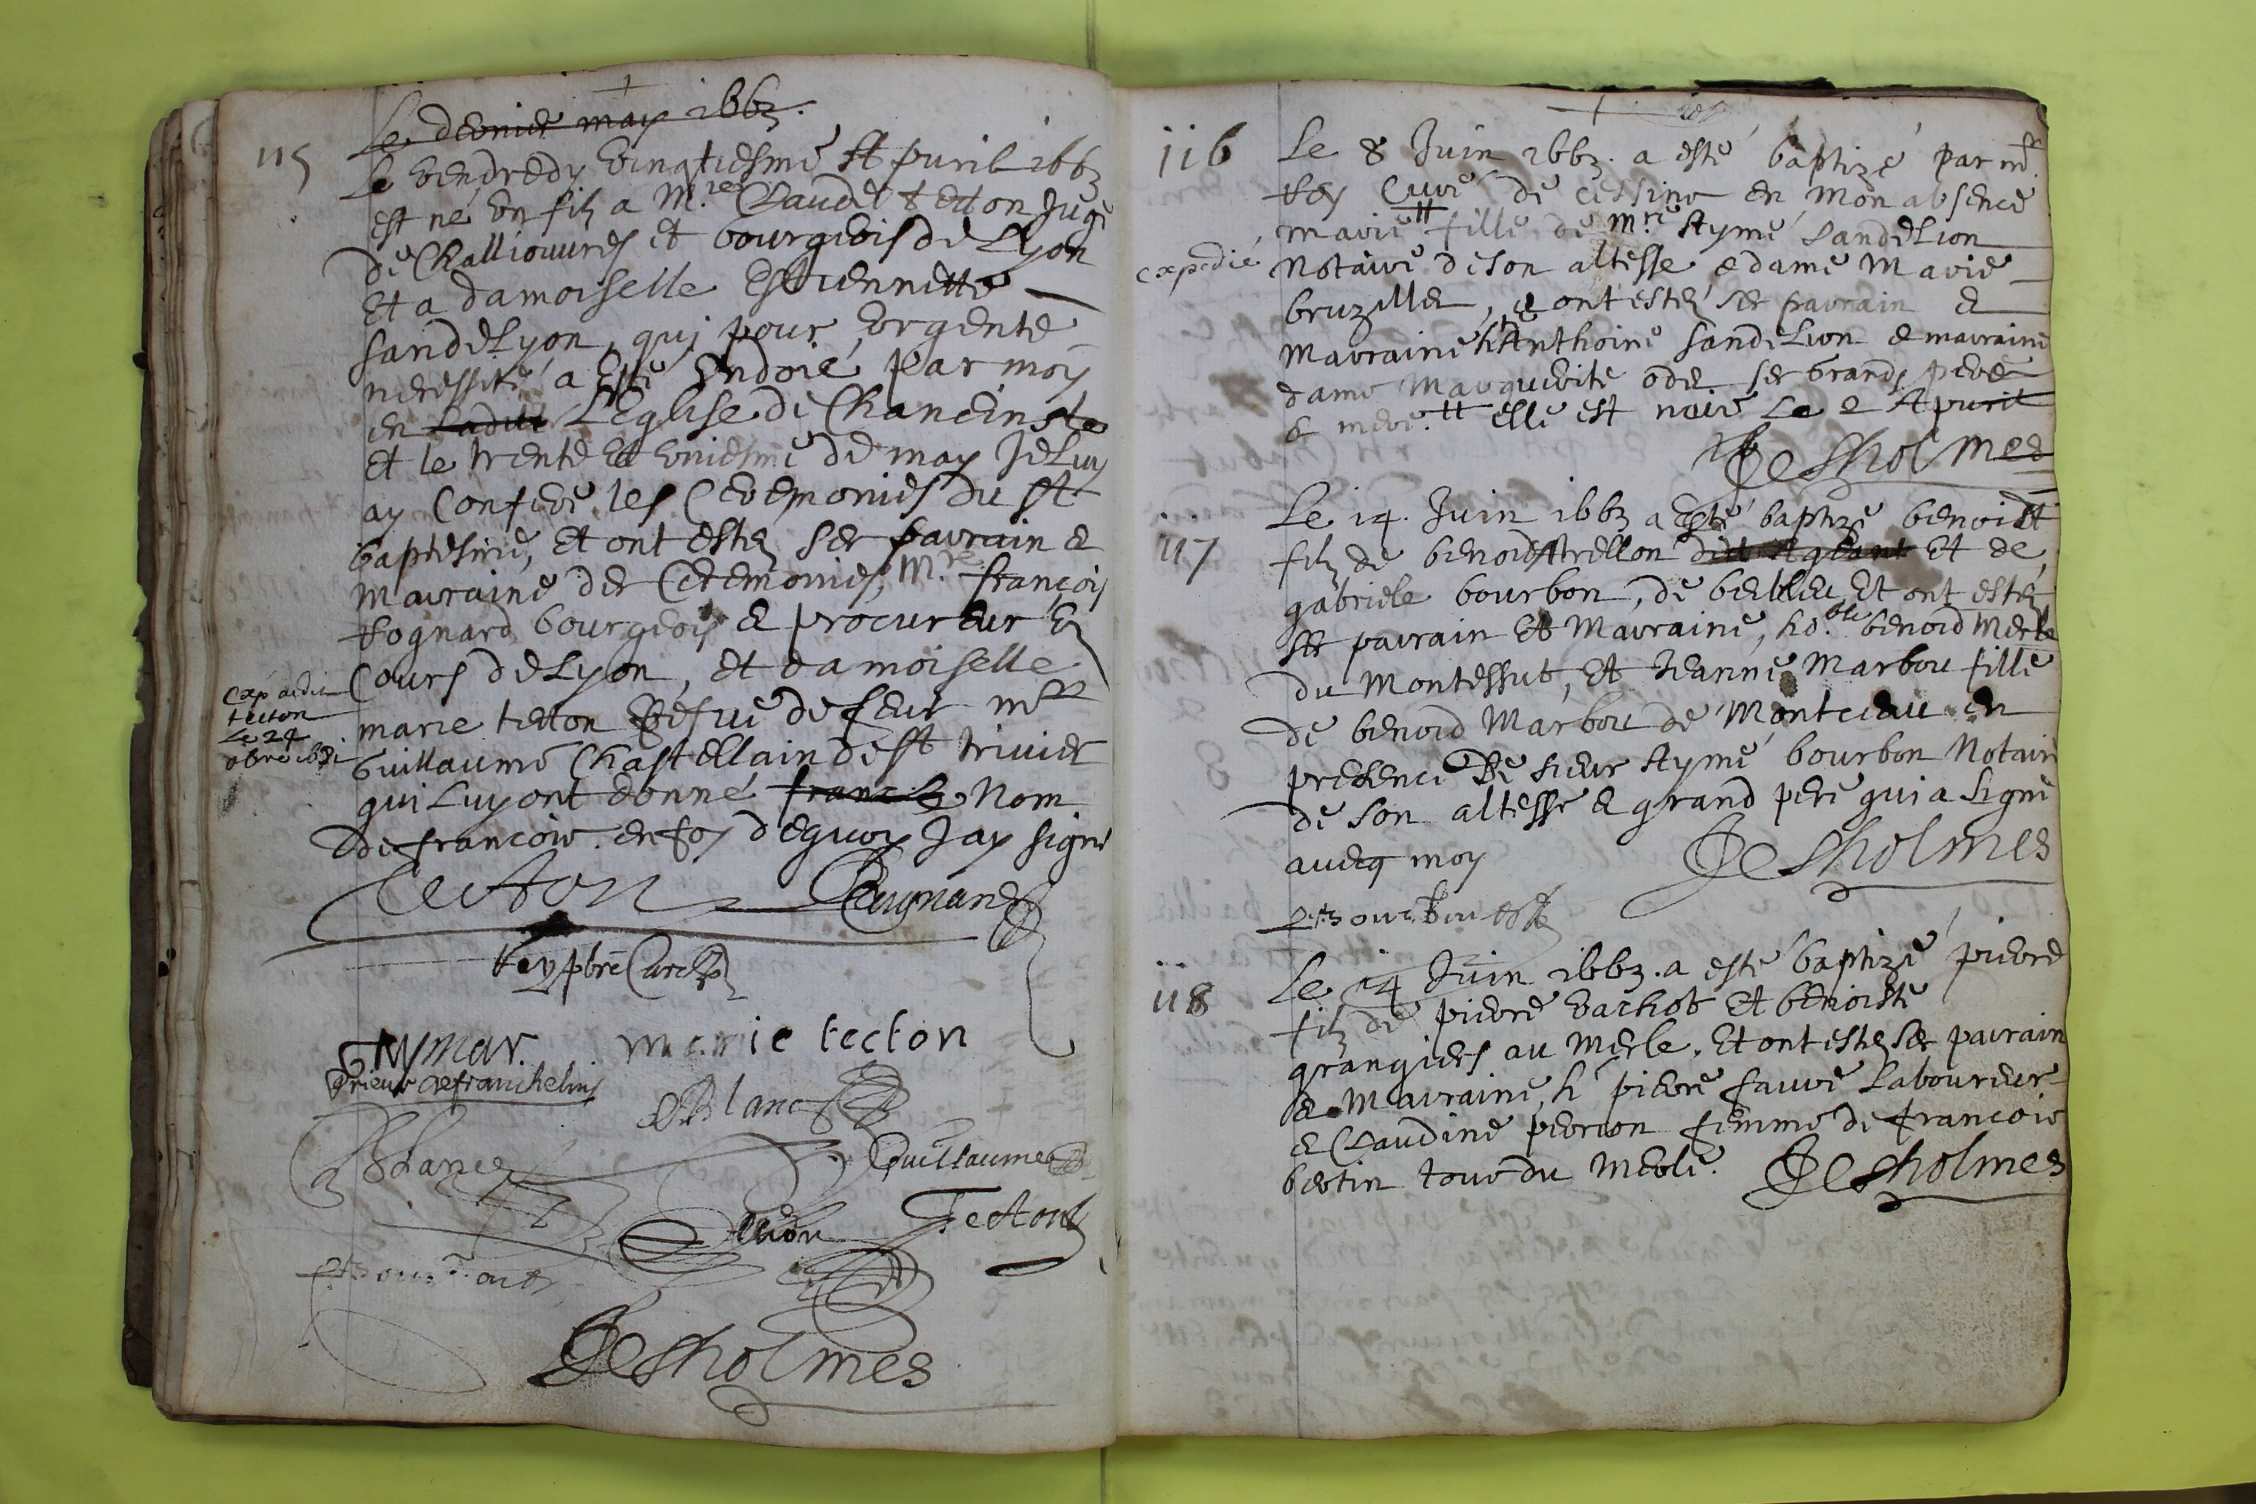 Le dernier may 1663.
115
Le Vendredy Vingtiesme Apuril 1663
est né Un filz a M.re Claude Tecton Juge
de Challiouures et bourgeois de Lyon
Et a damoiselle Estiennette
sandeLyon, qui pour Urgente
necessité a Esté Ondoié par moy
en Ladite L'Eglise de Chaneinste
Et le trente Et Uniesme de may Je Luy
ay Conferé les Ceremonies du St
baptesme, Et ont estez ses parrain &
Marraine des Ceremonies, M.re francois
Pognard bourgeois & procureur Es
Cours de Lyon, et damoiselle
marie tecton Vefue de feu mre
Guillaume Chastellain de St trivier
qui Luy ont donné franc Le Nom
de francois. en foy dequoy Jay signé
expedié
tecton
Le 24
obre 1671
Tecton Peugnard
Fey pbre Curé
Aymar. marie tecton
Prieur de franchelins
Blanc
Blanc Guillaume
Tecton
Desholmes
116
Le 8 Juin 1663. a esté baptizé par mr.
Fey Curé de Cessine en mon absence
marie fille de M.re Aymé SandeLion
expedié
Notaire de son altesse & dame Marie
bruzilles, & ont estez ses parrain &
Marraine h. Anthoine sandeLion & marraine
dame Marguerite odes ses Grands pere
& mere. elle est neie Le 2 Apuril
Desholmes
117
Le 14. Juin 1663 a Esté baptizé benoist
filz de benoist trellon dit Et de
gabriele bourbon, de beilleu, Et ont estez
ses parrain Et Marraine, ho.ble benoid Merle
du Montessut, Et Jeanne Marbou fille
de benoid Marbou de Montceau en
presence De sieur Aymé bourbon Notaire
de son altesse & grand pere qui a signé
auecq moy Desholmes
118
Le 14 Juin 1663. a esté baptizé pierre
filz de pierre Vachot Et benoiste
grangiers au Merle. Et ont estez ses parrain
& Marraine, h. pierre fauve Laboureur
& Claudine perron femme de francois
bertin tour du Merle. Desholmes